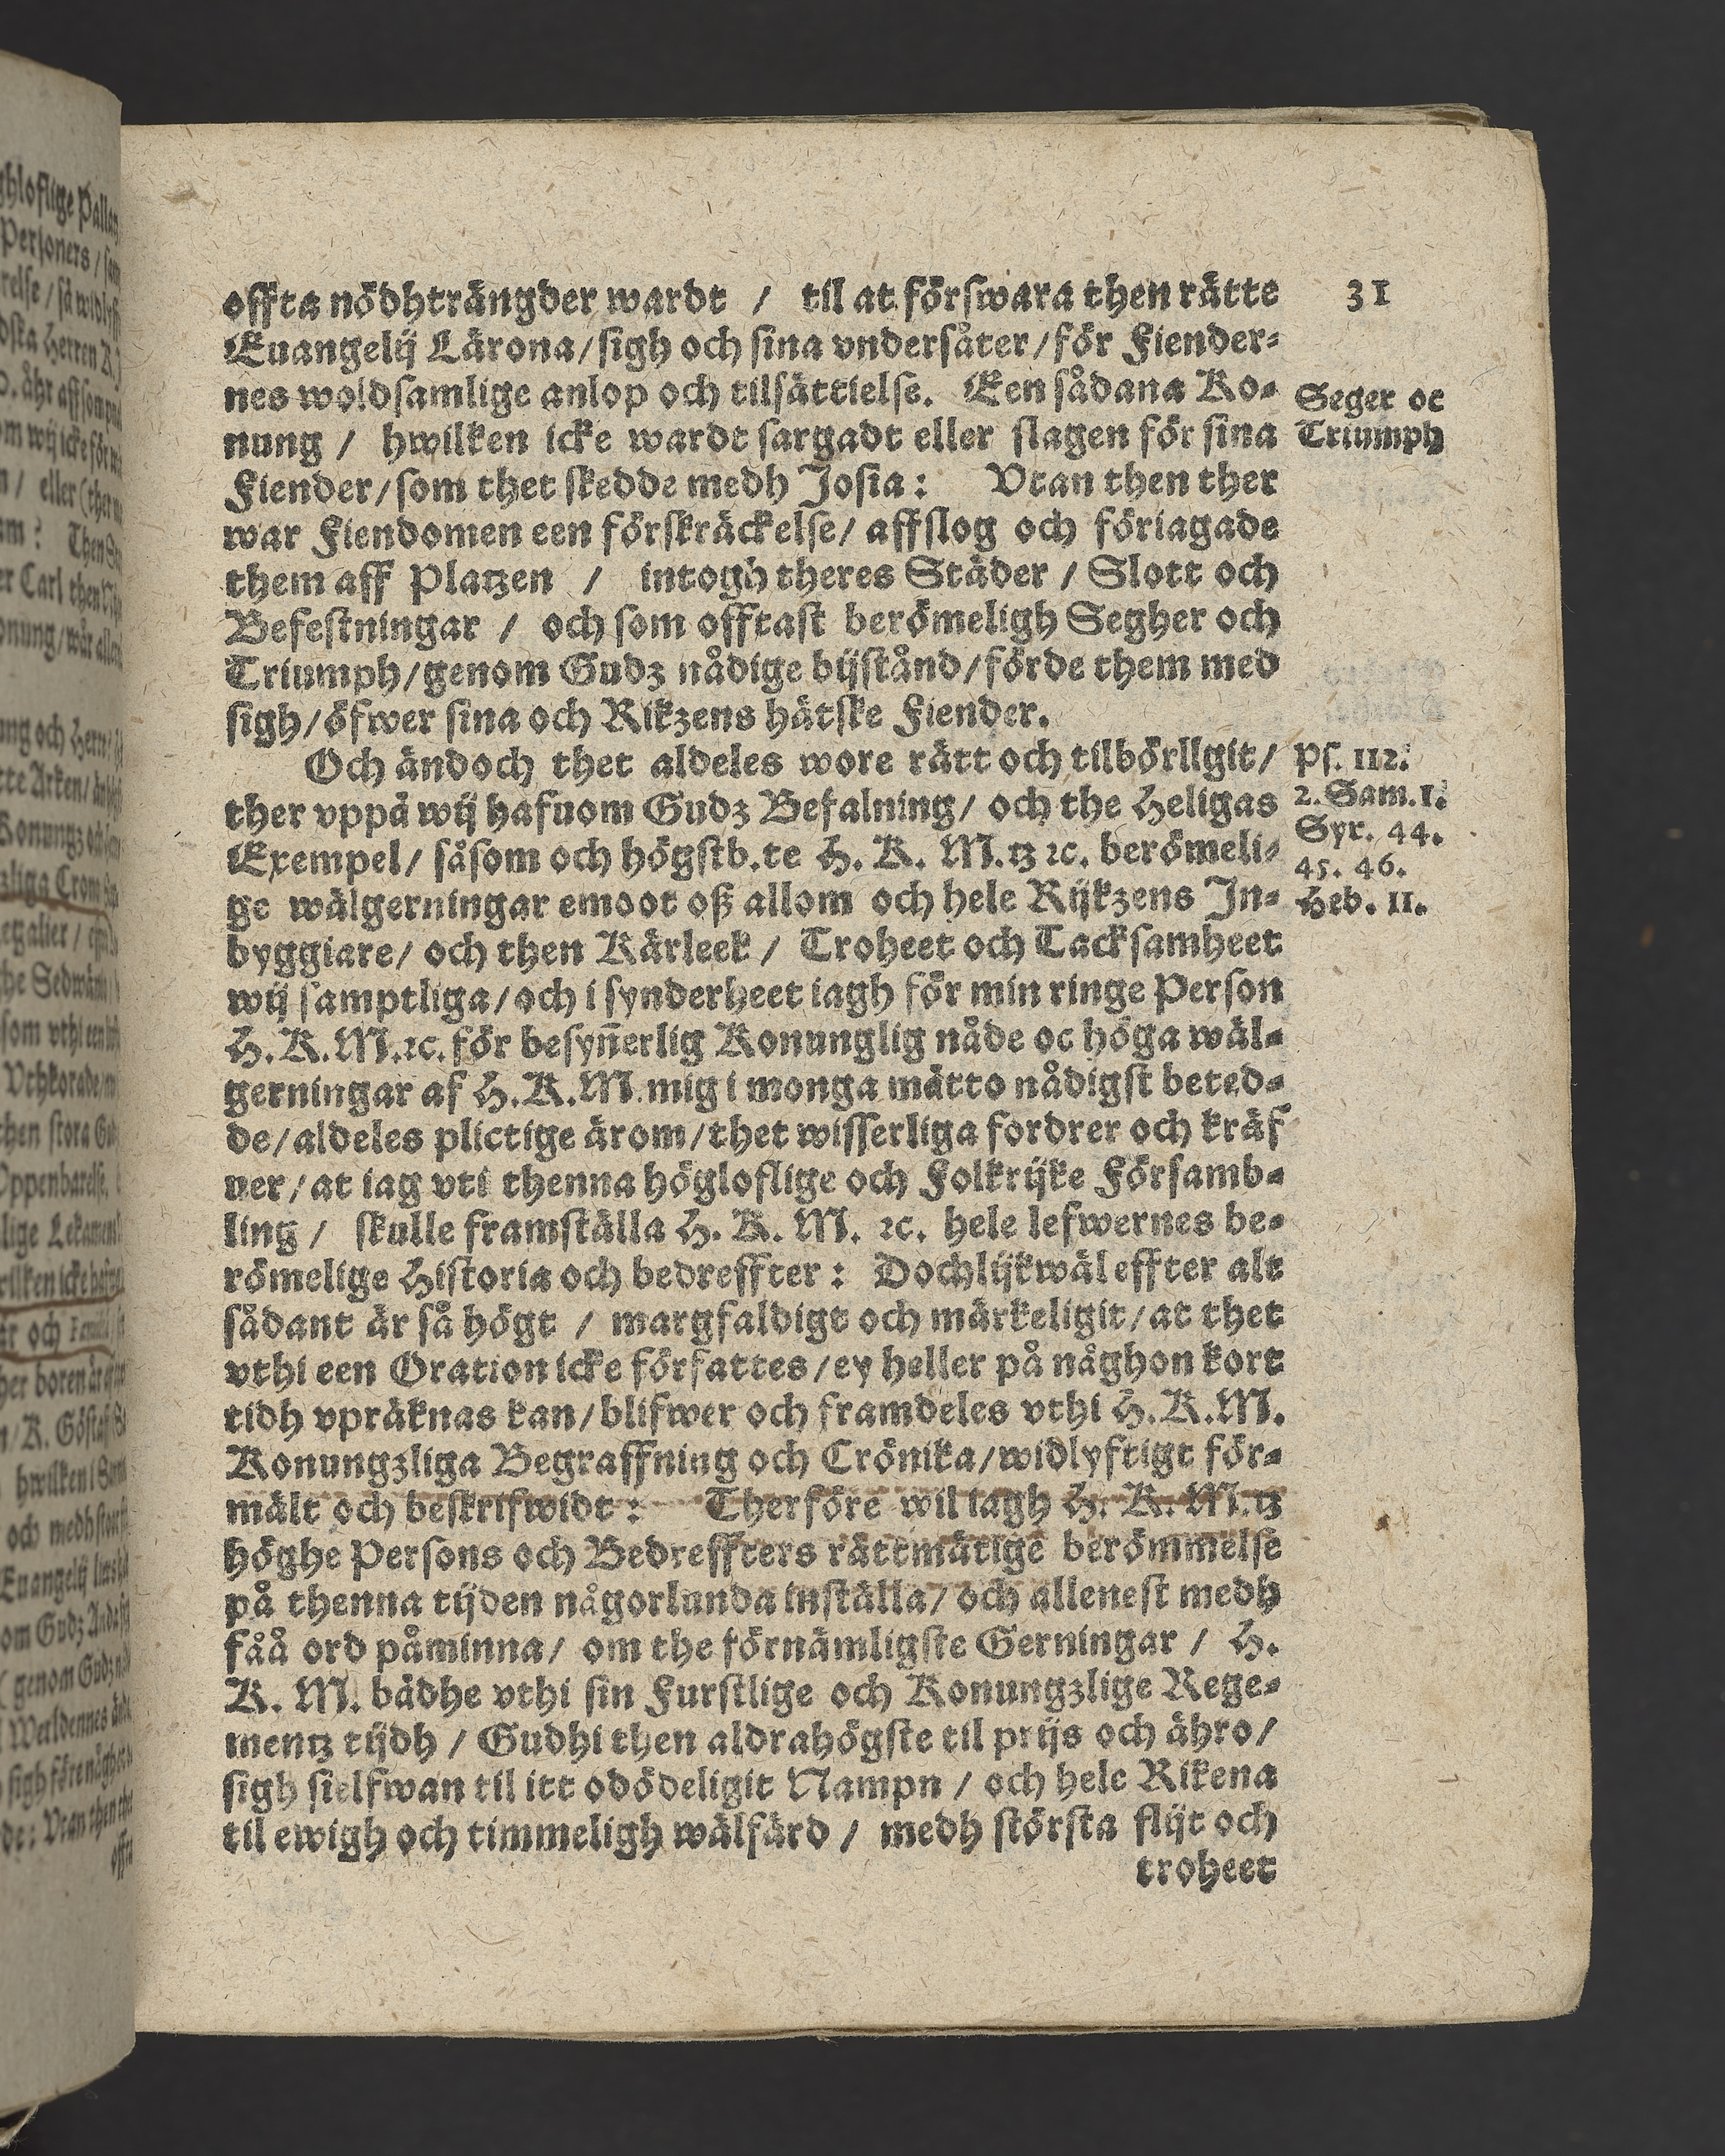 31
offta nödhträngder wardt / til at förswara then rätte
Euangelij Lärona/sigh och sina vndersåter/för Fiender⸗
nes woldsamlige anlop och tilsättielse. Een sådana Ko⸗
nung / hwilken icke wardt sargadt eller slagen för sina
Fiender/som thet skedde medh Josia: Vtan then ther
war Fiendomen een förskräckelse/ affslog och föriagade
them aff Platzen / intogh theres Städer / Slott och
Befestningar / och som offtast berömeligh Segher och
Triumph/genom Gudz nådige bijstånd/förde them med
sigh/öfwer sina och Rikzens hätske Fiender.
Seger oc
Triumph
Och ändoch thet aldeles wore rätt och tilbörllgit/
ther vppå wij hafuom Gudz Befalning/ och the Heligas
Exempel/ såsom och högstb.te H. K. M.tz ꝛc. berömeli⸗
ge wälgerningar emoot oß allom och hele Rijkzens In⸗
byggiare/ och then Kärleek / Troheet och Tacksamheet
wij samptliga/och i synderheet iagh för min ringe Person
H.K.M.ꝛc. för besyn̄erlig Konunglig nåde oc höga wäl⸗
gerningar af H.K.M.mig i monga mätto nådigst beted⸗
de/aldeles plictige ärom/thet wisserliga fordrer och kräf
uer/at iag vti thenna högloflige och Folkrijke Församb⸗
ling / skulle framställa H. K. M. ꝛc. hele lefwernes be⸗
römelige Historia och bedreffter: Dochlijkwäl effter alt
sådant är så högt / margfaldigt och märkeligit/at thet
vthi een Oration icke författes/ey heller på någhon kort
tidh vpräknas kan/blifwer och framdeles vthi H.K.M.
Konungzliga Begraffning och Crönika/widlyftigt för⸗
mält och beskrifwidt: Therföre wil iagh H. K. M.tz
höghe Persons och Bedreffters rättmätige berömmelse
på thenna tijden någorlunda inställa/ och allenest medh
fåå ord påminna/ om the förnämligste Gerningar / H.
K. M. bådhe vthi sin Furstlige och Konungzlige Rege⸗
mentz tijdh / Gudhi then aldrahögste til prijs och ähro/
sigh sielfwan til itt odödeligit Nampn / och hele Rikena
til ewigh och timmeligh wälfärd / medh största flijt och
troheet
Ps. 112.
2. Sam.1.
Syr. 44.
45. 46.
Heb. 11.